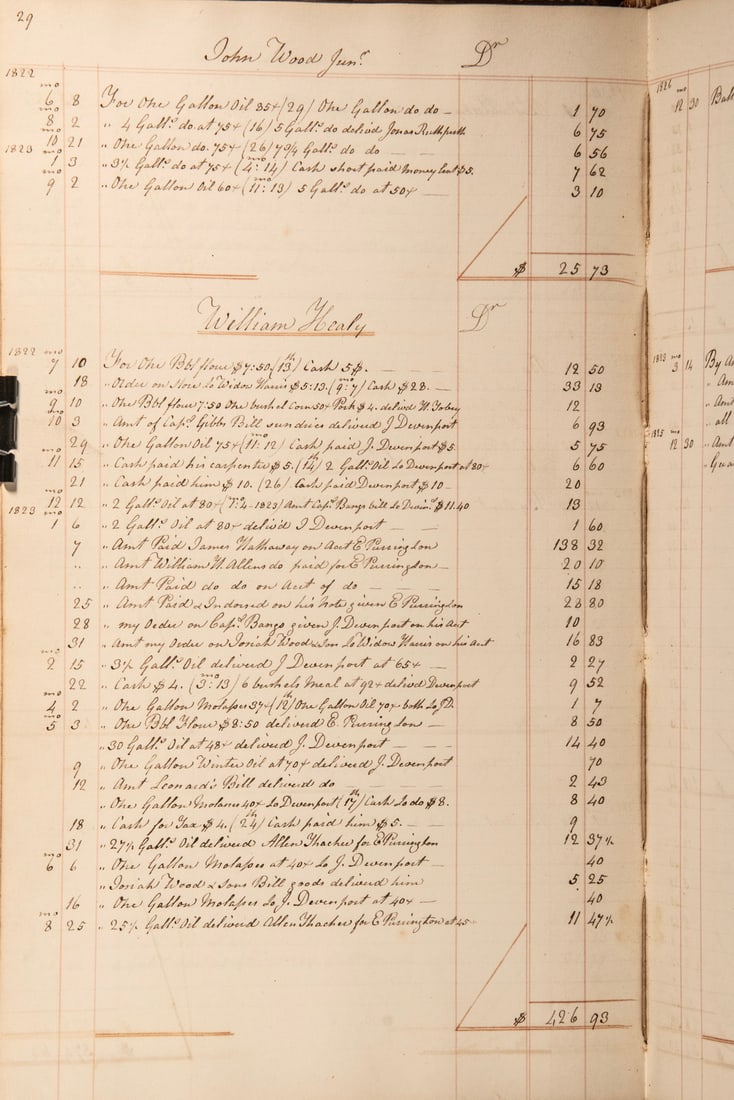 29
John Wood Junr. Dr
1822
mo
6 8 For One Gallon Oil 85¢ (29) One Gallon do do — 1 70
mo
8 2 " 4 Galls. do at 75¢ (16) 5 Galls. do deliv'd Jonas 6 75
mo
10 21 " One Gallon do. 75¢ (26) 7¾ Galls. do do — 6 56
1823 mo
1 3 " 3½ Galls. do at 75¢ (4 mo: 14) Cash short paid money lent $5. 7 62
mo
9 2 " One Gallon Oil 60¢ (11 mo: 13) 5 Galls. do at 50¢ — 3 10
$ 25 73
William Healy Dr
1822 mo
7 10 For One Bbl flour $7:50 (13th) Cash 5$. 12 50
18 " Order on Store to Widow Harris $5:13. (9 mo: 7) Cash $28. — 33 13
mo
9 10 " One Bbl flour 7:50 One bushel Corn 50¢ Pork $4. deliv'd W. 12
mo
10 3 " Amt of Capt. Gibbs Bill sundries deliver'd J Devenport 6 93
29 " One Gallon Oil 75¢ (11 mo: 12) Cash paid J. Devenport $5. 5 75
mo
11 15 " Cash paid his carpenter $5. (14th) 2 Galls. Oil to Devenport at 80¢ 6 60
21 " Cash paid him $10. (26) Cash paid Devenport $10 — 20
mo
12 12 " 2 Galls. Oil at 80¢ Amt Capt. Bangs bill to $11.40 13
1823 mo
1 6 " 2 Galls. Oil at 80¢ deliv'd J Devenport — — 1 60
7 " Amt Paid James Hathaway on Acct E Purrington 138 32
.. " Amt William H. Allens do paid for E Purrington — 20 10
.. " Amt Paid do do on Acct of do — — 15 18
25 " Amt Paid & Indorsed on his Note given E Purrington 28 80
28 " my Order on Capt. Bangs given J. Devenport on his Act 10
31 " Amt my Order on Josiah Wood & Son to Widow Harris on his Act 16 83
mo
2 15 " 3½ Galls. Oil deliver'd J Devenport at 65¢ — 2 27
22 " Cash $4. (3 mo: 13) 6 bushels Meal at 92¢ deliv'd Devenport 9 52
mo
4 2 " One Gallon Molasses 37¢ (12th) One Gallon Oil 70¢ both to J.D. 1 7
mo
5 3 " One Bbl Flour $8:50 deliver'd E. Purrington — 8 50
" 30 Galls. Oil at 48¢ deliver'd J. Devenport — — 14 40
9 " One Gallon Winter Oil at 70¢ deliver'd J. Devenport 70
12 " Amt Leonard's Bill deliver'd do — — 2 43
" One Gallon Molasses 40¢ to Devenport (17th) Cash to do $8. 8 40
18 " Cash for Tax $4. (24th) Cash paid him $5. — 9
31 " 27½ Galls. Oil deliver'd Allen Thacher for E Purrington 12 37½
mo
6 6 " One Gallon Molasses at 40¢ to J. Devenport — 40
" Josiah Wood & sons Bill goods deliver'd him 5 25
16 " One Gallon Molasses to J. Devenport at 40¢ — 40
mo
8 25 " 25½ Galls. Oil deliver'd Allen Thacher for E Purrington at 45 11 47½
$ 426 93
1826 mo
12 30 Ball
1823 mo
3 14 By A
" Am
" Amt
" all
1825 mo
12 30 " Amt